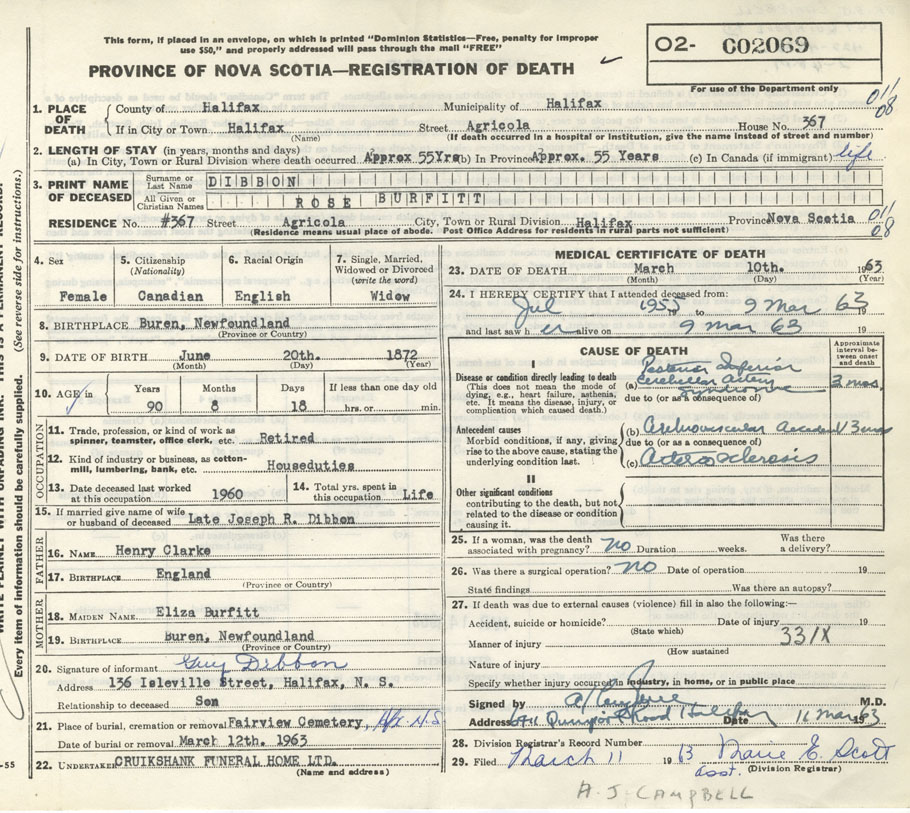 This form, if placed in an envelope, on which is printed "Dominion Statistics—Free, penalty for improper
use $50," and properly addressed will pass through the mail "FREE"
PROVINCE OF NOVA SCOTIA—REGISTRATION OF DEATH
O2- C02069
For use of the Department only
1. PLACE OF DEATH County of Halifax Municipality of Halifax
If in City or Town Halifax Street Agricola House No. 367
(Name) (If death occurred in a hospital or institution, give the name instead of street and number)
2. LENGTH OF STAY (in years, months and days)
(a) In City, Town or Rural Division where death occurred Approx 55Yrs (b) In Province Approx. 55 Years (c) In Canada (if immigrant) life
3. PRINT NAME OF DECEASED Surname or Last Name DIBBON
All Given or Christian Names ROSE BURFITT
RESIDENCE No. #367 Street Agricola City, Town or Rural Division Halifax Province Nova Scotia
(Residence means usual place of abode. Post Office Address for residents in rural parts not sufficient)
011
08
011
08
4. Sex Female
5. Citizenship (Nationality) Canadian
6. Racial Origin English
7. Single, Married, Widowed or Divorced (write the word) Widow
8. BIRTHPLACE Buren, Newfoundland
(Province or Country)
9. DATE OF BIRTH June 20th. 1872
(Month) (Day) (Year)
10. AGE in Years Months Days If less than one day old
90 8 18 hrs. or min.
OCCUPATION
11. Trade, profession, or kind of work as spinner, teamster, office clerk, etc. Retired
12. Kind of industry or business, as cotton-mill, lumbering, bank, etc. Houseduties
13. Date deceased last worked at this occupation 1960
14. Total yrs. spent in this occupation Life
15. If married give name of wife or husband of deceased Late Joseph R. Dibbon
FATHER
16. NAME Henry Clarke
17. BIRTHPLACE England
(Province or Country)
MOTHER
18. MAIDEN NAME Eliza Burfitt
19. BIRTHPLACE Buren, Newfoundland
(Province or Country)
20. Signature of informant Guy Dibbon
Address 136 Isleville Street, Halifax, N. S.
Relationship to deceased Son
21. Place of burial, cremation or removal Fairview Cemetery, Hfx N.S
Date of burial or removal March 12th. 1963
22. UNDERTAKER CRUIKSHANK FUNERAL HOME LTD.
(Name and address)
MEDICAL CERTIFICATE OF DEATH
23. DATE OF DEATH March 10th. 1963
(Month) (Day) (Year)
24. I HEREBY CERTIFY that I attended deceased from:
Jul 1955 19 to 9 Mar 63 19
and last saw h er alive on 9 Mar 63 19
CAUSE OF DEATH
Approximate interval between onset and death
I
Disease or condition directly leading to death
(This does not mean the mode of dying, e.g., heart failure, asthenia, etc. It means the disease, injury, or complication which caused death.)
(a) Posterior Inferior cerebellar artery syndrome 3 mos
due to (or as a consequence of)
Antecedent causes
Morbid conditions, if any, giving rise to the above cause, stating the underlying condition last.
(b) Cerebrovascular Accident 3 mos
due to (or as a consequence of)
(c) Arterosclerosis
II
Other significant conditions
contributing to the death, but not related to the disease or condition causing it.
25. If a woman, was the death associated with pregnancy? no Duration weeks. Was there a delivery?
26. Was there a surgical operation? no Date of operation 19
State findings Was there an autopsy?
27. If death was due to external causes (violence) fill in also the following:—
Accident, suicide or homicide? Date of injury 19
(State which)
331X
Manner of injury
(How sustained
Nature of injury
Specify whether injury occurred in industry, in home, or in public place
Signed by M.D.
Address Date 11 Mar 1963
28. Division Registrar's Record Number
29. Filed March 11 1963 Marie E. Scott
asst. (Division Registrar)
A. J. CAMPBELL
(See reverse side for instructions.)
Every item of information should be carefully supplied.
-55